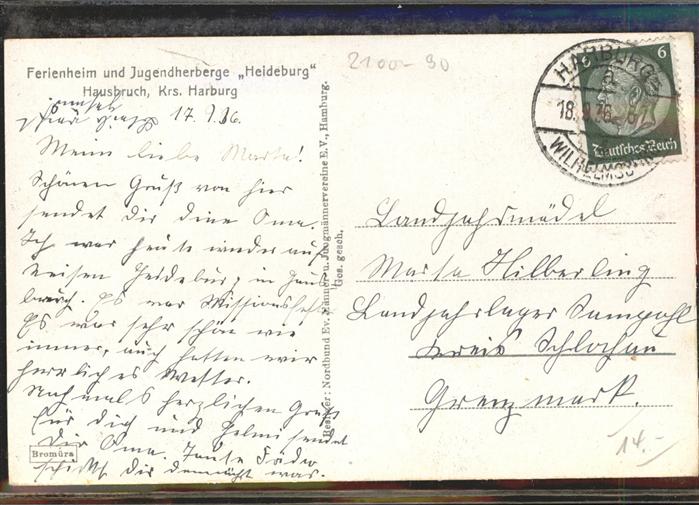 Ferienheim und Jugendherberge „Heideburg"
Hausbruch, Krs. Harburg
17.9.36.
Mein liebe Marta!
Schönen Gruß von hier
sendet dir deine Oma.
Ich war heute wieder auf
Reisen Heideburg, in Haus
bruch. Es war Missionsfest
Es war sehr schön wie
immer, auch hatten wir
herrliches Wetter.
Nochmals herzlichen Gruß
für dich und Helmi sendet
Dir Oma. Tante Frieda
schickt dir demnächst was.
Bromüra
Hersteller: Nordbund Ev. Männer- u. Jungmännervereine E.V., Hamburg.
Ges. gesch.
2100-90
HARBURG
a
18.9.36.
WILHELMSBURG
6
Deutsches Reich
Landjahrmädel
Marta Hilberling
Landjahrlager Sampohl
Kreis Schlochau
Grenzmark.
14.-